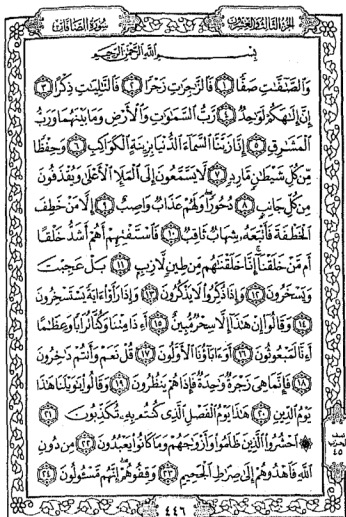 الجزء الثالث والعشرون
سورة الصافات
بِسْمِ اللَّهِ الرَّحْمَٰنِ الرَّحِيمِ
وَالصَّٰٓفَّٰتِ صَفًّا ١ فَالزَّٰجِرَٰتِ زَجْرًا ٢ فَالتَّٰلِيَٰتِ ذِكْرًا ٣
إِنَّ إِلَٰهَكُمْ لَوَٰحِدٌ ٤ رَّبُّ السَّمَٰوَٰتِ وَالْأَرْضِ وَمَا بَيْنَهُمَا وَرَبُّ
الْمَشَٰرِقِ ٥ إِنَّا زَيَّنَّا السَّمَآءَ الدُّنْيَا بِزِينَةٍ الْكَوَاكِبِ ٦ وَحِفْظًا
مِّن كُلِّ شَيْطَٰنٍ مَّارِدٍ ٧ لَّا يَسَّمَّعُونَ إِلَى الْمَلَإِ الْأَعْلَىٰ وَيُقْذَفُونَ
مِن كُلِّ جَانِبٍ ٨ دُحُورًا وَلَهُمْ عَذَابٌ وَاصِبٌ ٩ إِلَّا مَنْ خَطِفَ
الْخَطْفَةَ فَأَتْبَعَهُۥ شِهَابٌ ثَاقِبٌ ١٠ فَاسْتَفْتِهِمْ أَهُمْ أَشَدُّ خَلْقًا
أَم مَّنْ خَلَقْنَآ إِنَّا خَلَقْنَٰهُم مِّن طِينٍ لَّازِبٍ ١١ بَلْ عَجِبْتَ
وَيَسْخَرُونَ ١٢ وَإِذَا ذُكِّرُوا لَا يَذْكُرُونَ ١٣ وَإِذَا رَأَوْا ءَايَةً يَسْتَسْخِرُونَ
١٤ وَقَالُوٓا إِنْ هَٰذَآ إِلَّا سِحْرٌ مُّبِينٌ ١٥ أَءِذَا مِتْنَا وَكُنَّا تُرَابًا وَعِظَٰمًا
أَءِنَّا لَمَبْعُوثُونَ ١٦ أَوَءَابَآؤُنَا الْأَوَّلُونَ ١٧ قُلْ نَعَمْ وَأَنتُمْ دَٰخِرُونَ
١٨ فَإِنَّمَا هِيَ زَجْرَةٌ وَٰحِدَةٌ فَإِذَا هُمْ يَنظُرُونَ ١٩ وَقَالُوا يَٰوَيْلَنَا هَٰذَا
يَوْمُ الدِّينِ ٢٠ هَٰذَا يَوْمُ الْفَصْلِ الَّذِي كُنتُم بِهِۦ تُكَذِّبُونَ ٢١
۞ احْشُرُوا الَّذِينَ ظَلَمُوا وَأَزْوَٰجَهُمْ وَمَا كَانُوا يَعْبُدُونَ ٢٢ مِن دُونِ
اللَّهِ فَاهْدُوهُمْ إِلَىٰ صِرَٰطِ الْجَحِيمِ ٢٣ وَقِفُوهُمْ إِنَّهُم مَّسْـُٔولُونَ ٢٤
نصف
الحزب
٤٥
٤٤٦